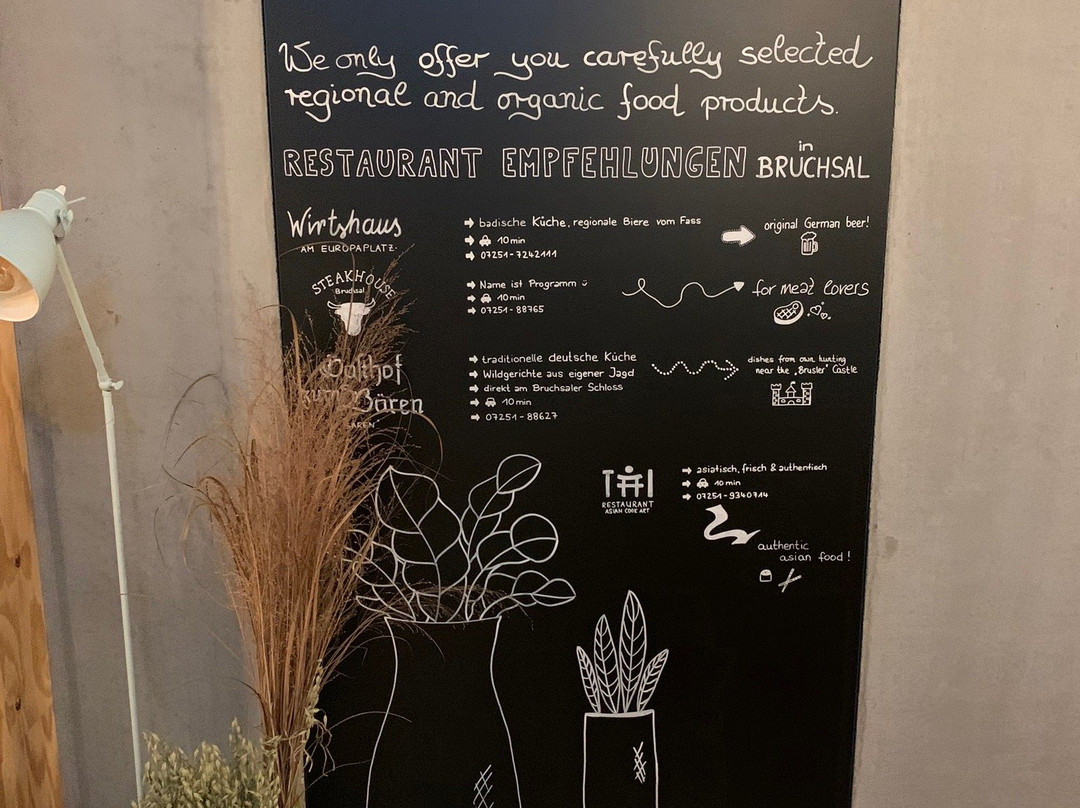 We only offer you carefully selected
regional and organic food products.
RESTAURANT EMPFEHLUNGEN in BRUCHSAL
Wirtshaus
AM EUROPAPLATZ
➡ badische Küche, regionale Biere vom Fass
➡ 10 min
➡ 07251-7242111
original German beer!
STEAKHOUSE
Bruchsal
➡ Name ist Programm
➡ 10 min
➡ 07251-88765
for meat lovers
Gasthof
zum Bären
➡ traditionelle deutsche Küche
➡ Wildgerichte aus eigener Jagd
➡ direkt am Bruchsaler Schloss
➡ 10 min
➡ 07251-88627
dishes from own hunting
near the „Brusler" Castle
TAI
RESTAURANT
ASIAN COOK ART
➡ asiatisch, frisch & authentisch
➡ 10 min
➡ 07251-9340714
authentic
asian food!